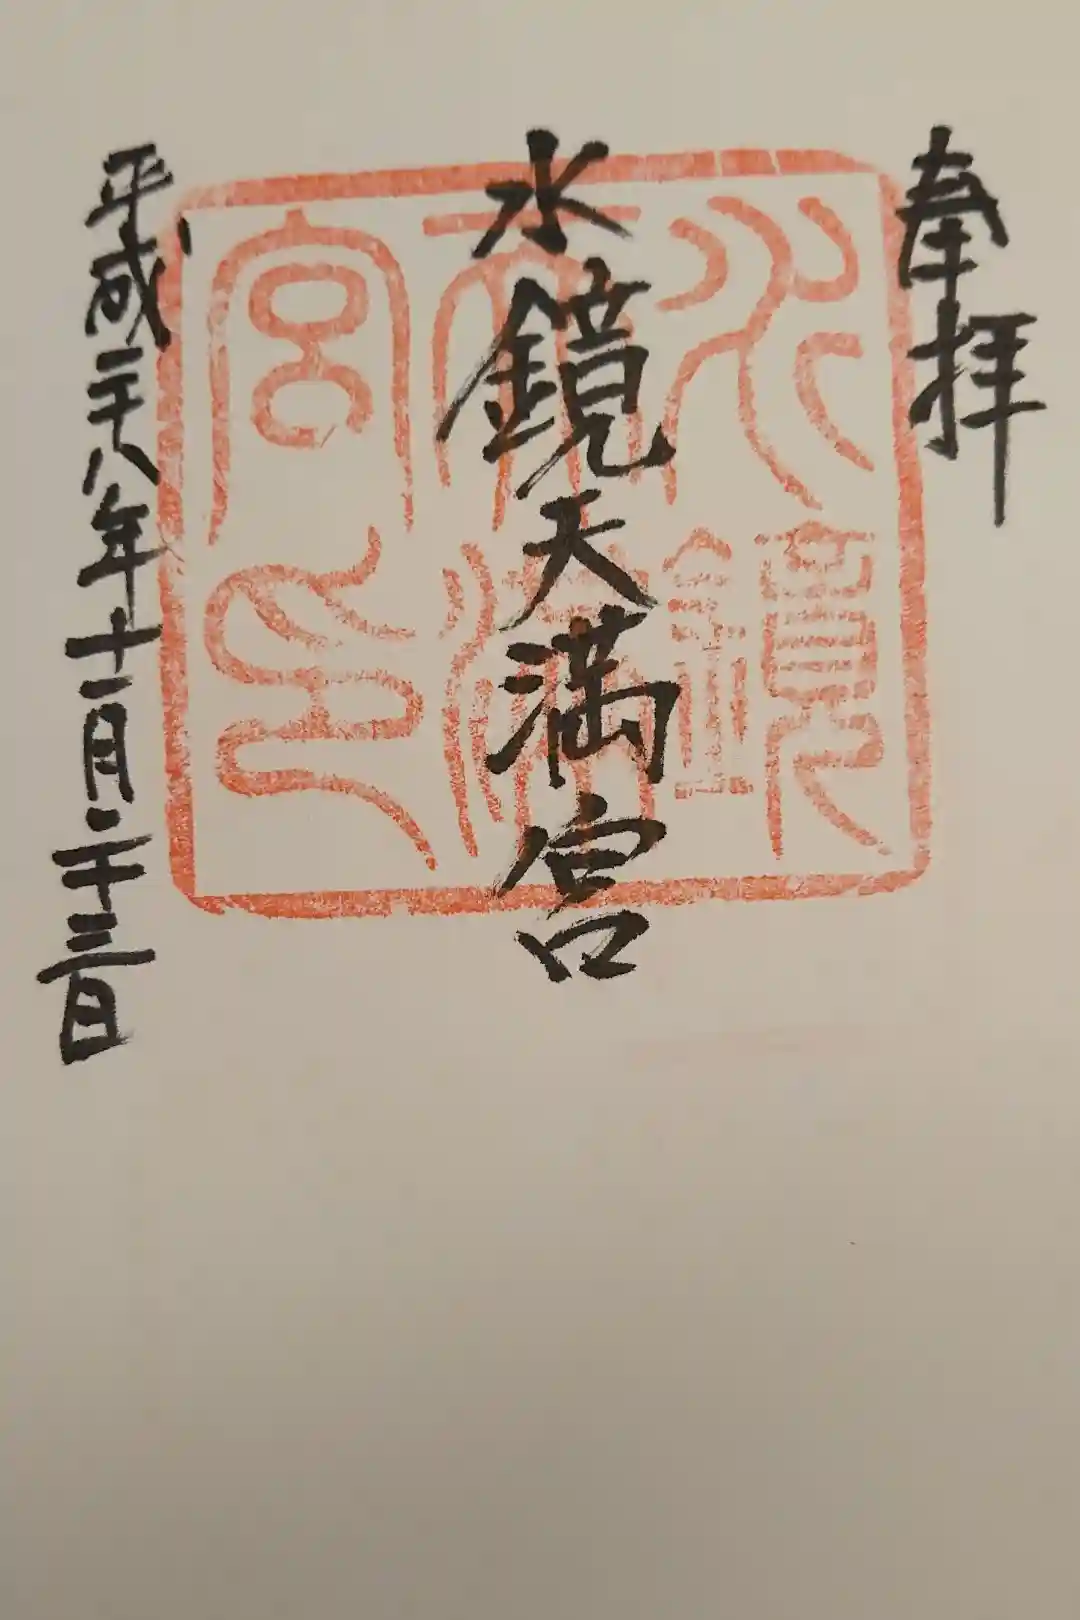 奉拝
水鏡天満宮
平成二十八年十一月二十三日
水鏡
天満
宮印